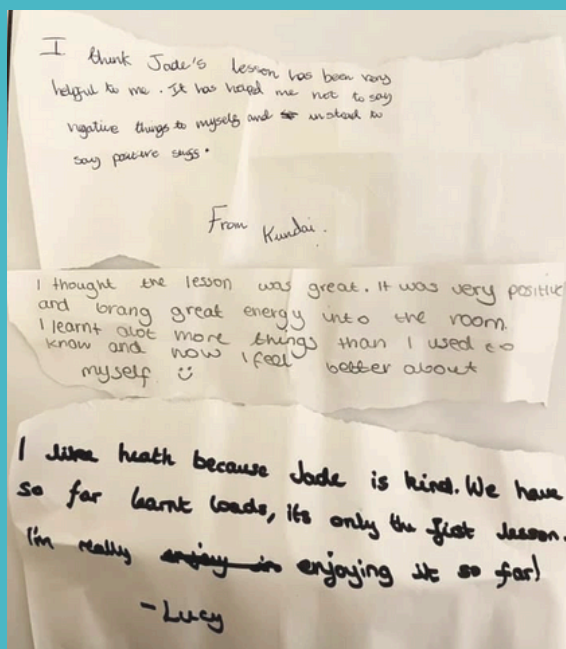 I think Jade's lesson has been very
helpful to me. It has helped me not to say
negative things to myself and instead to
say positive
From Kundai.
I thought the lesson was great. It was very positive
and brang great energy into the room.
I learnt alot more things than I used to
know and now I feel better about
myself
I like heath because Jade is kind. We have
so far learnt loads, its only the fist lesson.
I'm really enjoying it so far!
-Lucy